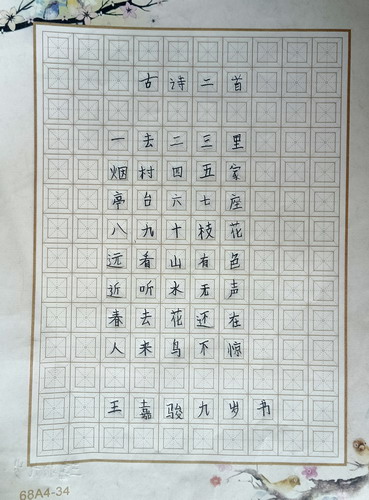 古诗二首
一去二三里
烟村四五家
亭台六七座
八九十枝花
远看山有色
近听水无声
春去花还在
人来鸟不惊
王嘉骏九岁书
68A4-34